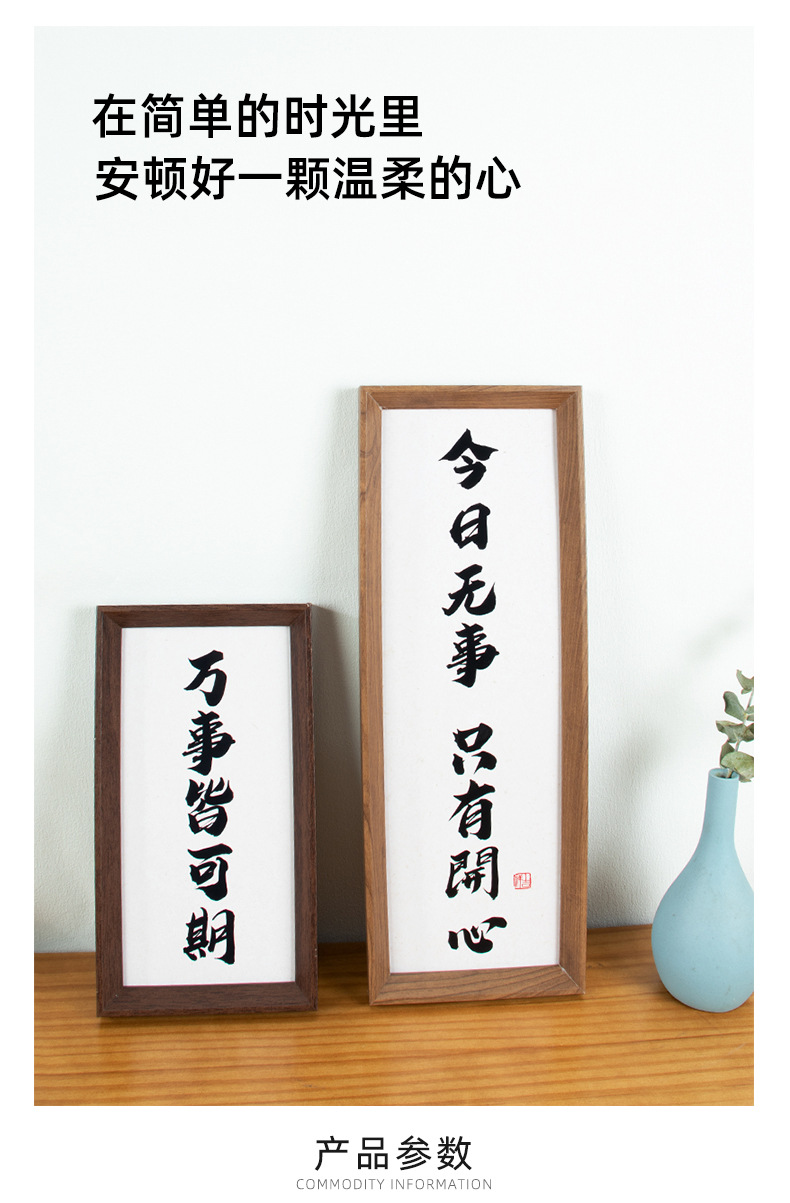 在简单的时光里
安顿好一颗温柔的心
今日无事 只有開心
万事皆可期
产品参数
COMMODITY INFORMATION